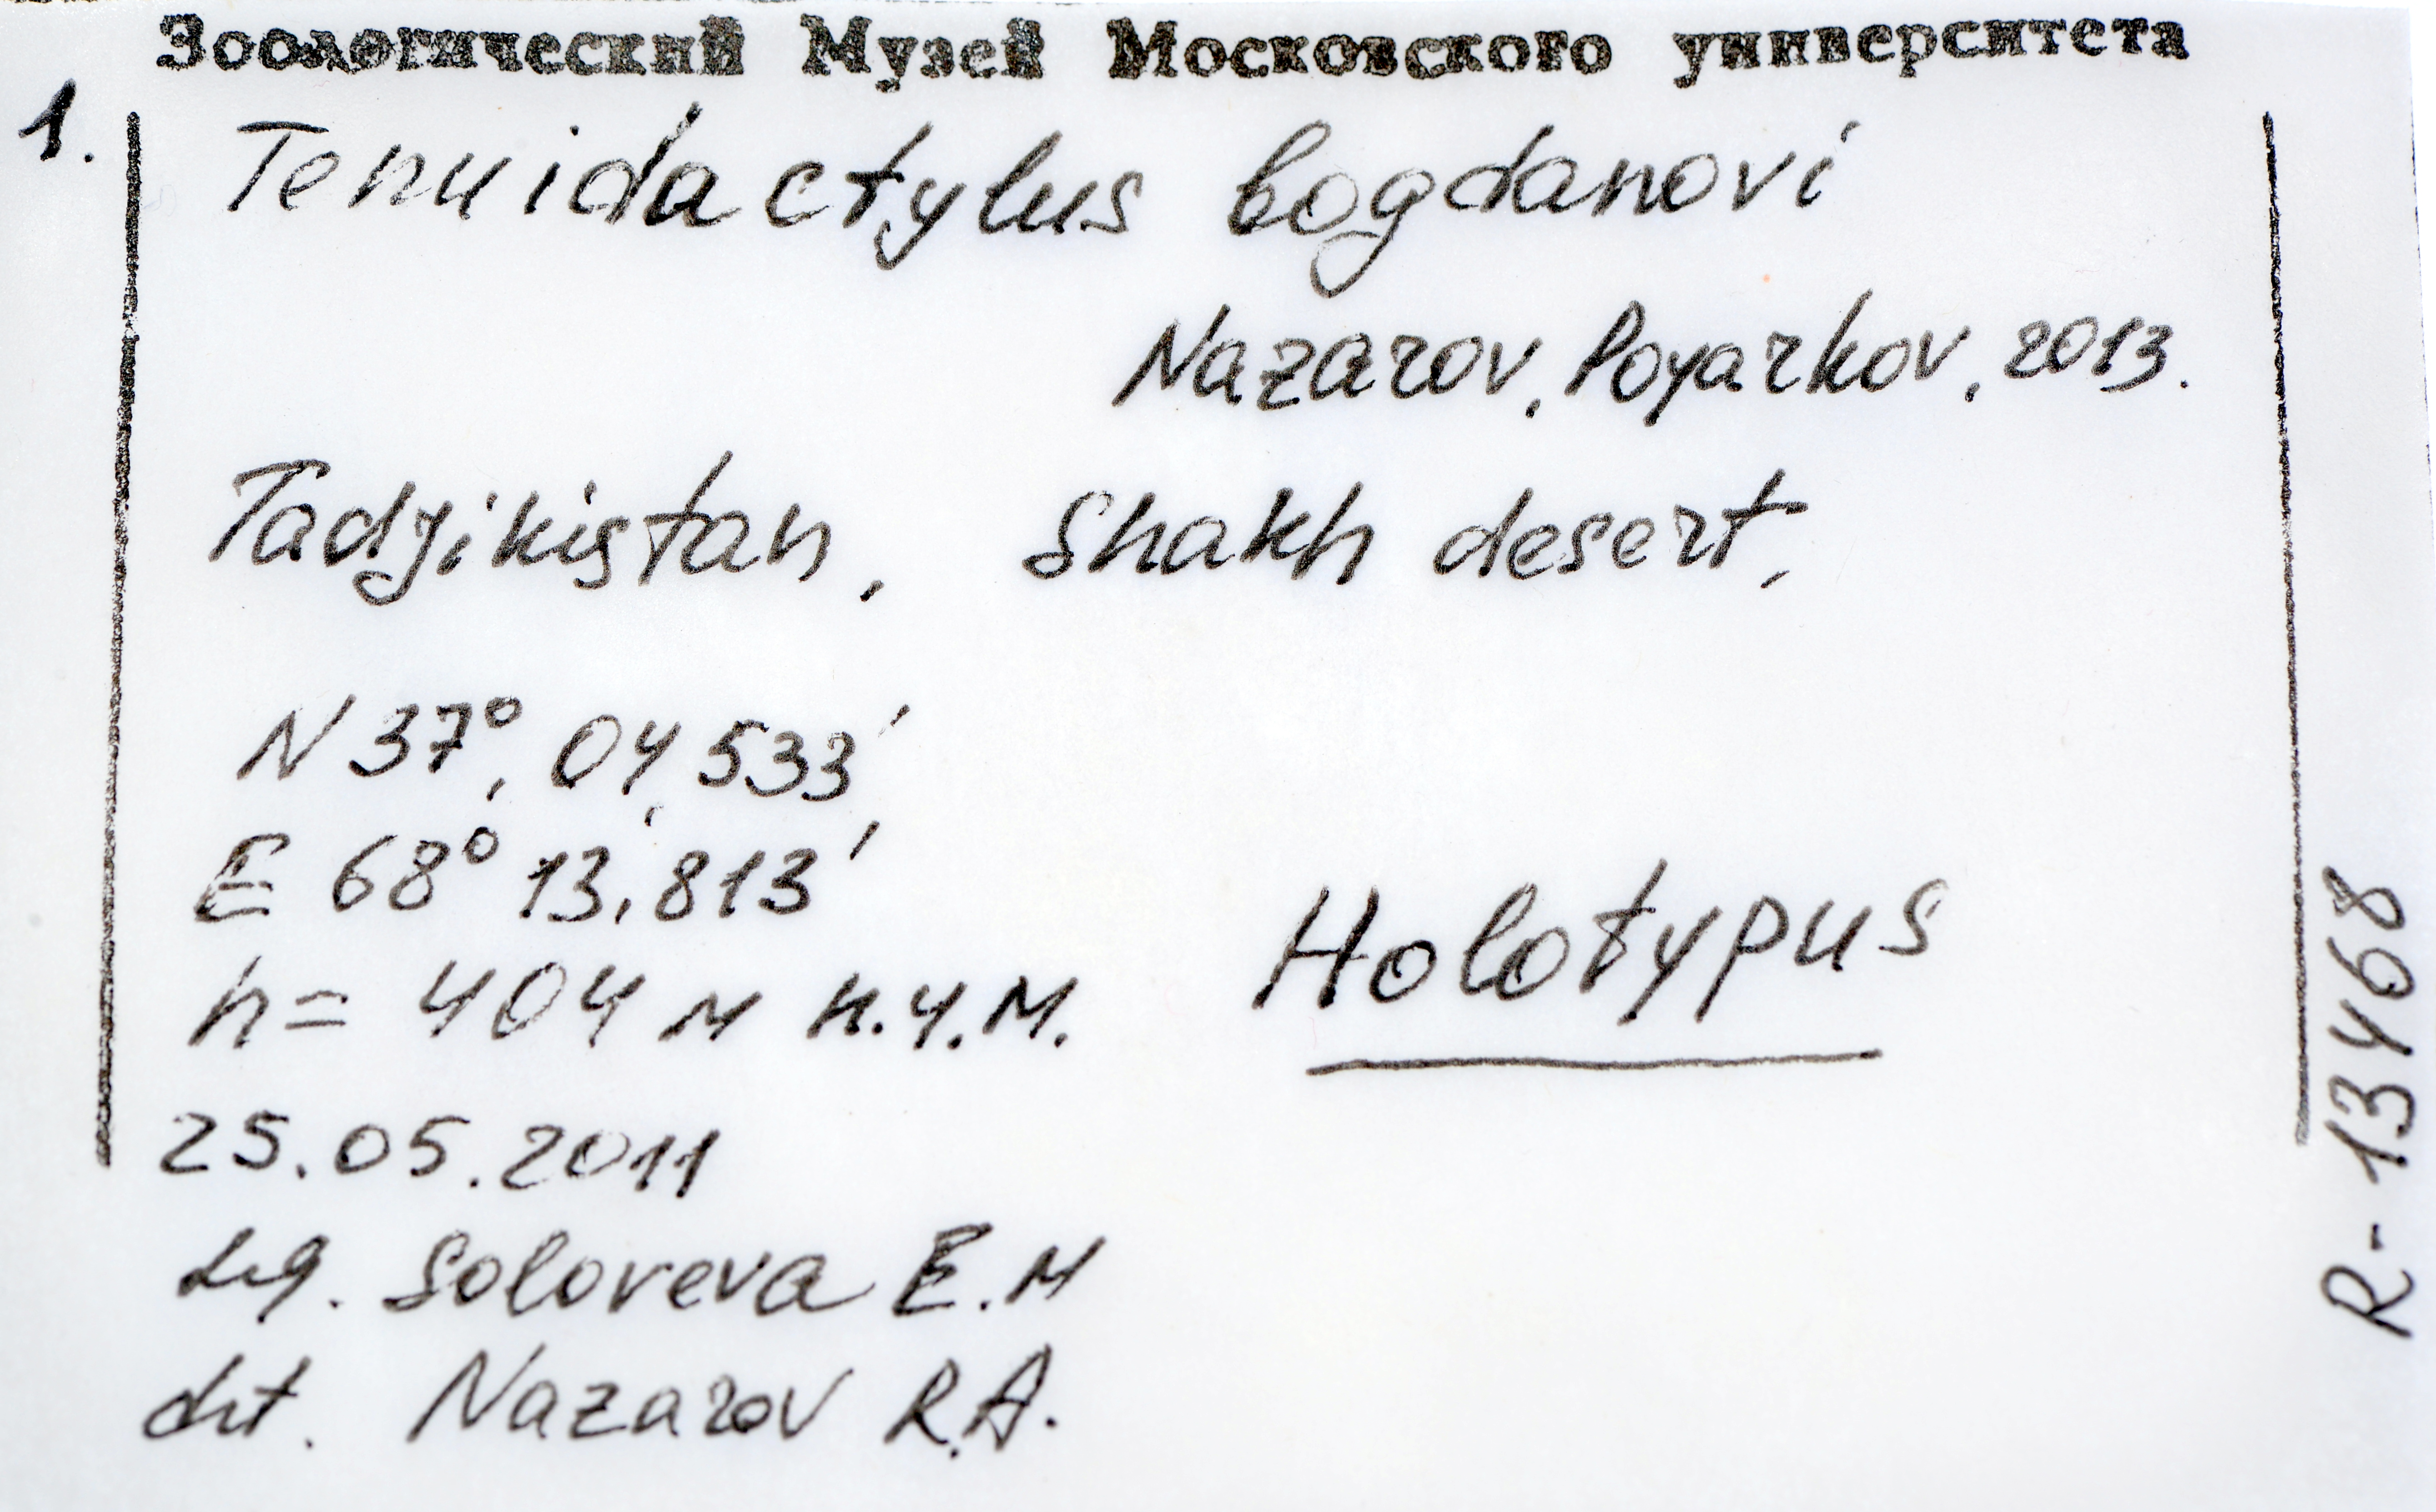 Зоологический Музей Московского университета
1.
Tenuidactylus bogdanovi
Nazarov, Poyarkov, 2013.
Tadjikistan, Shakh desert,
N 37°, 04,533',
E 68° 13,813'
h = 404 м н.у.м.
Holotypus
25.05.2011
Leg. Soloveva E.N
det. Nazarov R.A.
R-13468